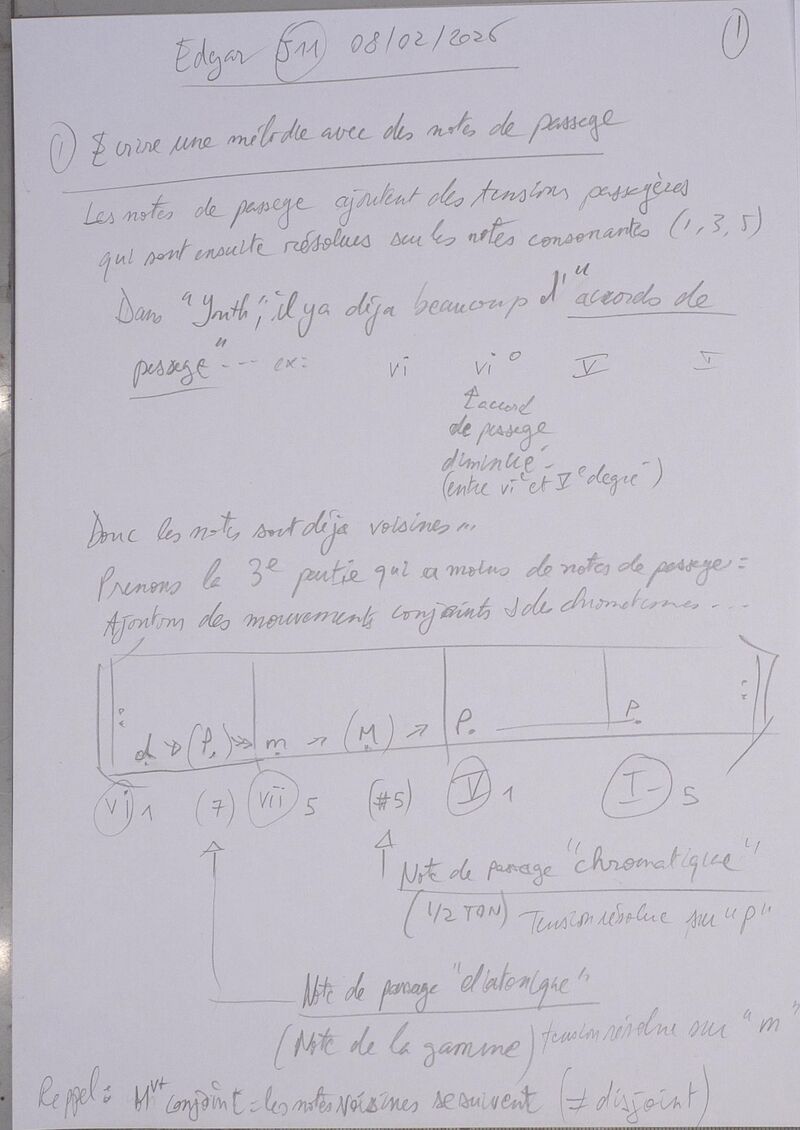 Edgar J11 08/02/2026
1
1 Ecrire une mélodie avec des notes de passage
Les notes de passage ajoutent des tensions passagères
qui sont ensuite résolues sur les notes consonantes (1, 3, 5)
Dans "Youth", il y a déja beaucoup d'"accords de
passage" --- ex: vi vi° V I
↑ accord
de passage
diminué
(entre vi e et V e degré)
Donc les notes sont déja voisines...
Prenons la 3e partie qui a moins de notes de passage =
Ajoutons des mouvements conjoints & des chromatismes...
d (P.) m (M) P. P.
vi 1 (7) vii 5 (#5) V 1 I 5
Note de passage "chromatique"
(1/2 TON) Tension résolue sur "p"
Note de passage "diatonique"
(Note de la gamme) tension résolue sur "m"
Rappel: Mvt conjoint = les notes voisines se suivent (≠ disjoint)